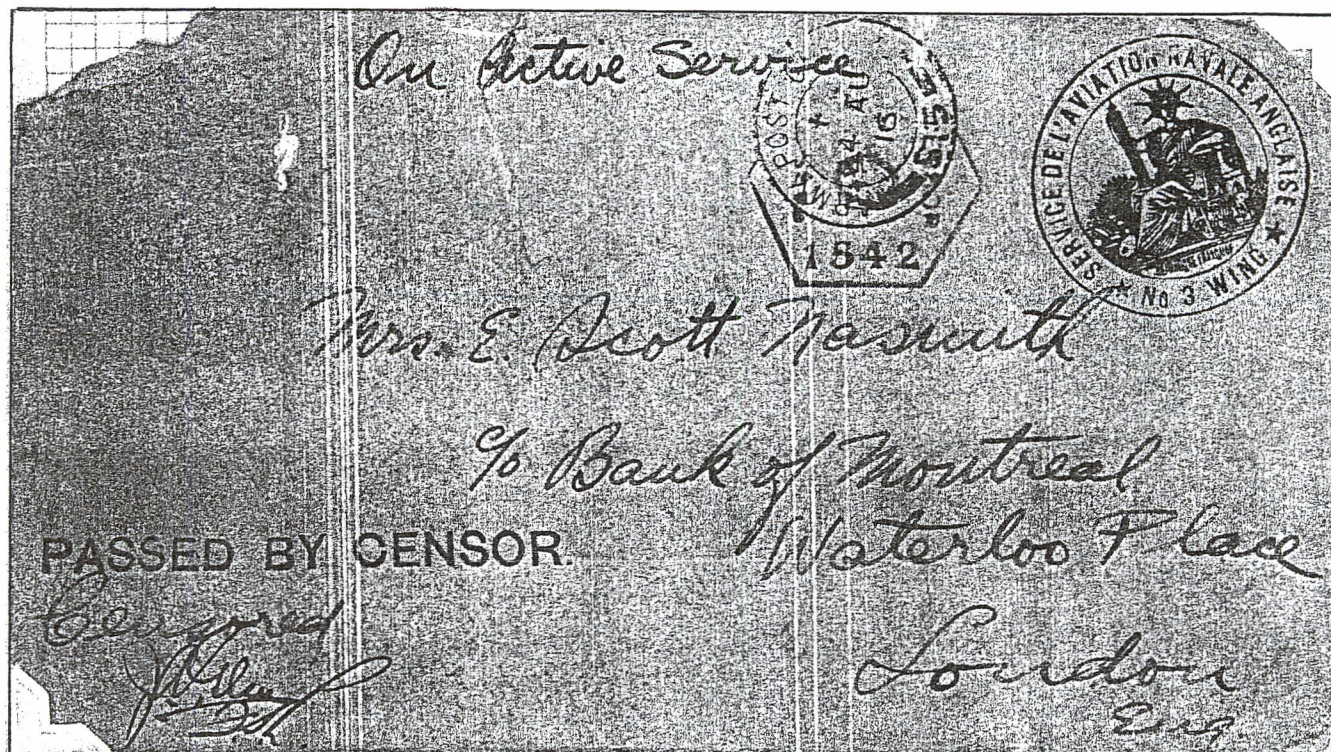 On Active Service
ARMY POST OFFICE
AU
16
PASSED
1542
SERVICE DE L'AVIATION NAVALE ANGLAISE
★ No 3 WING ★
Mrs. E. Scott Nasmith
c/o Bank of Montreal
Waterloo Place
London
Eng.
PASSED BY CENSOR.
Censored